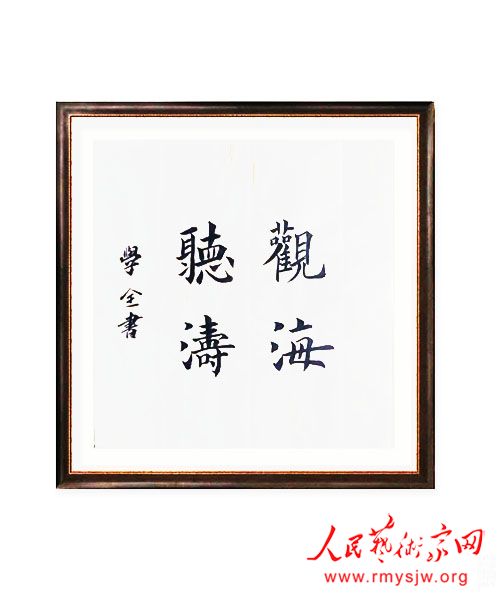 觀海
聽濤
學全書
人民藝術家网
www.rmysjw.org